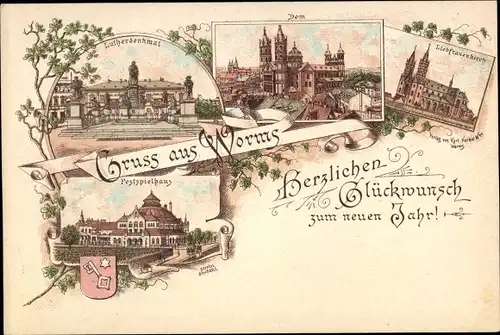 Dom
Lutherdenkmal
Liebfrauenkirch
Gruss aus Worms
Festspielhaus
Herzlichen
Glückwunsch
zum neuen Jahr!
Verlag von Karl
Worms